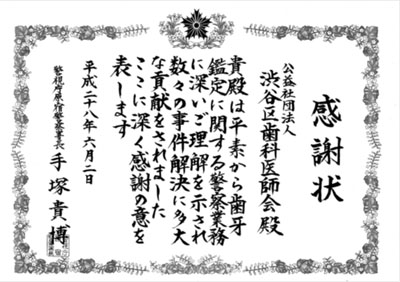 感謝状
公益社団法人
渋谷区歯科医師会殿
貴殿は平素から歯牙
鑑定に関する警察業務
に深いご理解を示され
数々の事件解決に多大
な貢献をされました
ここに深く感謝の意を
表します
平成二十八年六月二日
警視庁原宿警察署長 手塚貴博